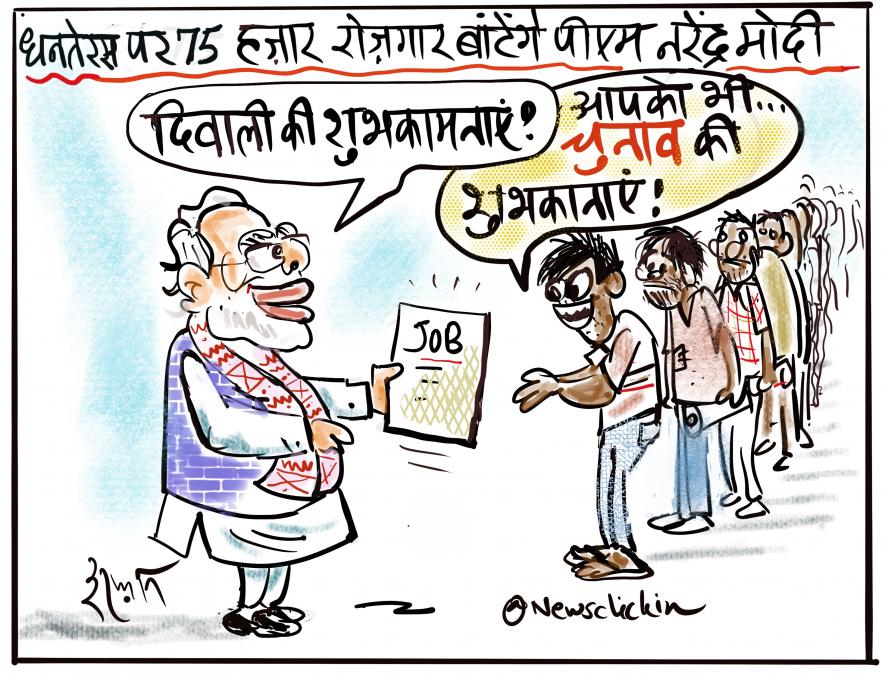 धनतेरस पर 75 हज़ार रोज़गार बांटेंगे पीएम नरेंद्र मोदी
दिवाली की शुभकामनाएं!
आपको भी...
चुनाव की
शुभकानाएं!
JOB
@Newsclickin